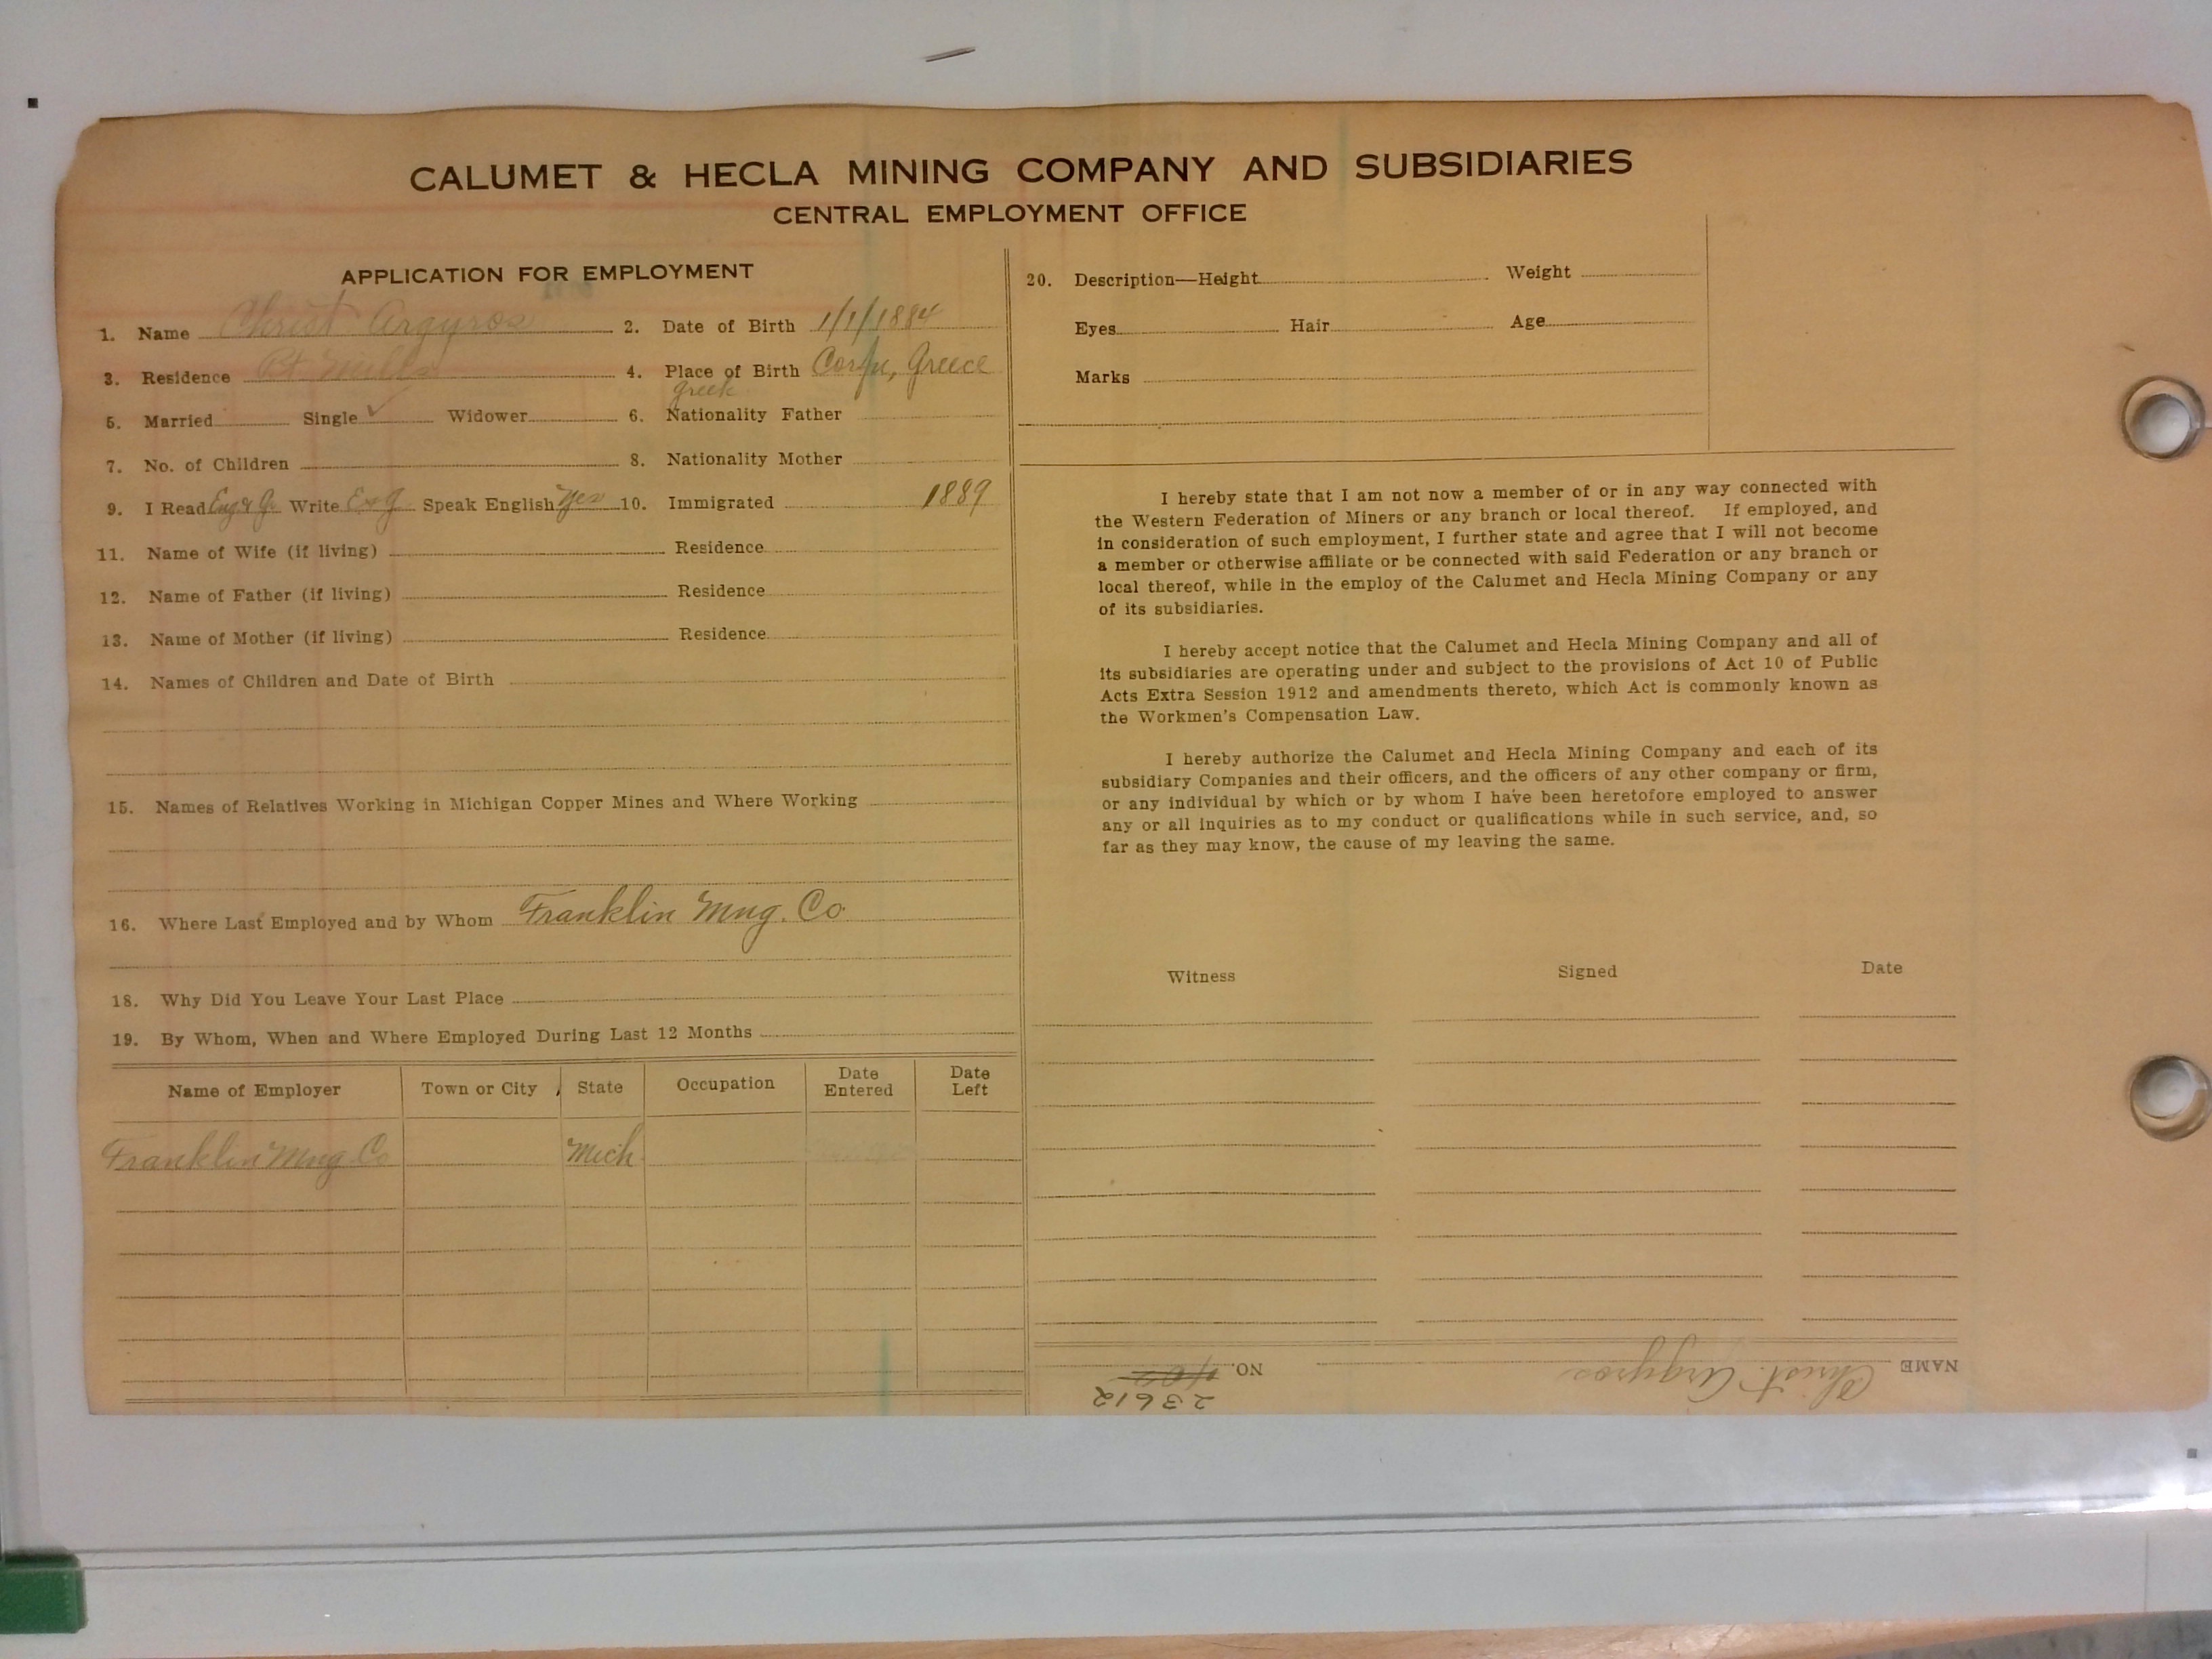 CALUMET & HECLA MINING COMPANY AND SUBSIDIARIES
CENTRAL EMPLOYMENT OFFICE
APPLICATION FOR EMPLOYMENT
1. Name Christ Argyros 2. Date of Birth 1/1/1884
3. Residence Pt Mills 4. Place of Birth Corfu, Greece
Greek
5. Married Single ✓ Widower 6. Nationality Father
7. No. of Children 8. Nationality Mother
9. I Read Eng & Gr Write E & G Speak English Yes 10. Immigrated 1889
11. Name of Wife (if living) Residence
12. Name of Father (if living) Residence
13. Name of Mother (if living) Residence
14. Names of Children and Date of Birth
15. Names of Relatives Working in Michigan Copper Mines and Where Working
16. Where Last Employed and by Whom Franklin Mng. Co
18. Why Did You Leave Your Last Place
19. By Whom, When and Where Employed During Last 12 Months
Name of Employer Town or City State Occupation Date Entered Date Left
Franklin Mng. Co Mich
20. Description—Height Weight
Eyes Hair Age
Marks
I hereby state that I am not now a member of or in any way connected with
the Western Federation of Miners or any branch or local thereof. If employed, and
in consideration of such employment, I further state and agree that I will not become
a member or otherwise affiliate or be connected with said Federation or any branch or
local thereof, while in the employ of the Calumet and Hecla Mining Company or any
of its subsidiaries.
I hereby accept notice that the Calumet and Hecla Mining Company and all of
its subsidiaries are operating under and subject to the provisions of Act 10 of Public
Acts Extra Session 1912 and amendments thereto, which Act is commonly known as
the Workmen's Compensation Law.
I hereby authorize the Calumet and Hecla Mining Company and each of its
subsidiary Companies and their officers, and the officers of any other company or firm,
or any individual by which or by whom I have been heretofore employed to answer
any or all inquiries as to my conduct or qualifications while in such service, and, so
far as they may know, the cause of my leaving the same.
Witness Signed Date
NAME Christ. Argyros NO.
23612